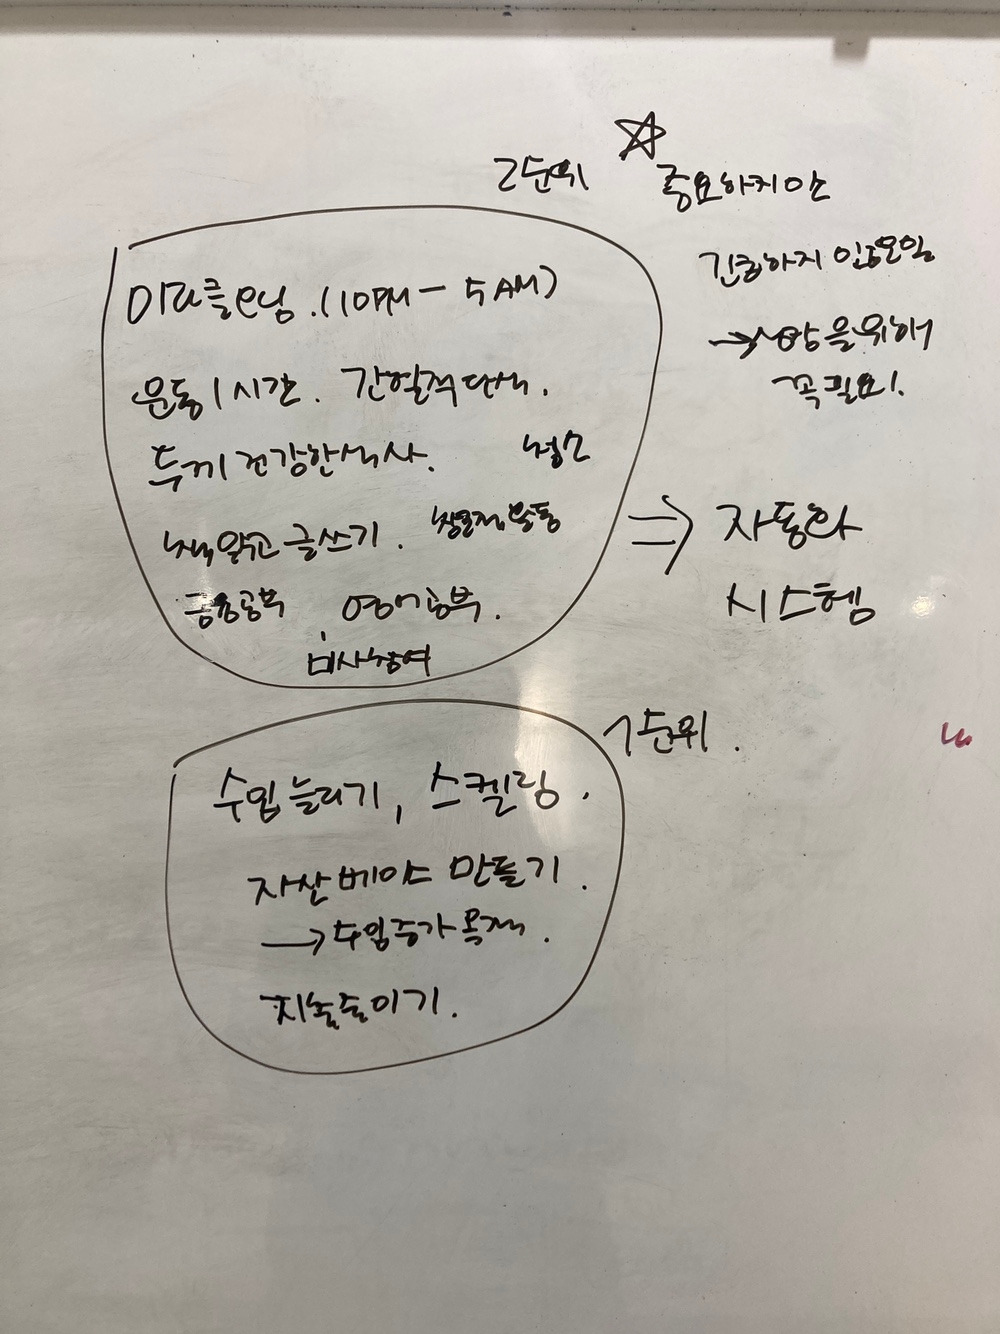 2순위
☆ 중요하지만
긴급하지 않은일
→ 성장을 위해
꼭 필요!
미라클모닝. (10PM - 5AM)
운동 1시간. 간헐적단식.
두끼 건강한식사. 청소
책읽고 글쓰기.
금융공부, 영어공부.
⇒ 자동화
시스템
1순위.
수입 늘리기, 스켈링.
자산 베이스 만들기.
→ 수입증가 목적.
지출줄이기.